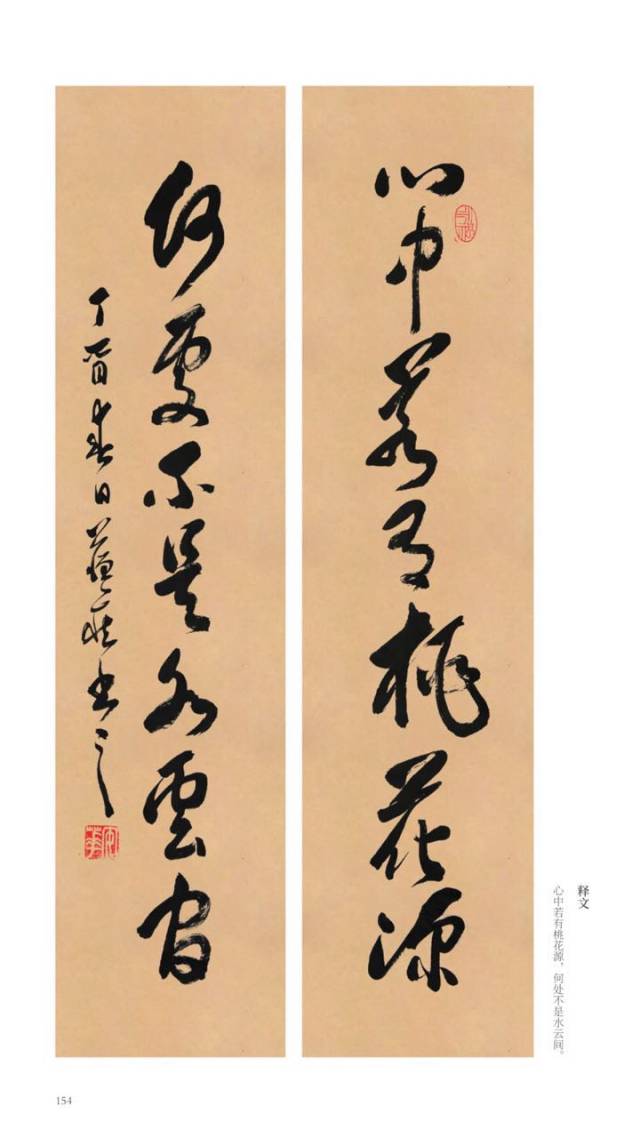 心中若有桃花源
何處不是水雲間
丁酉春日書之
释文
心中若有桃花源，何处不是水云间。
154